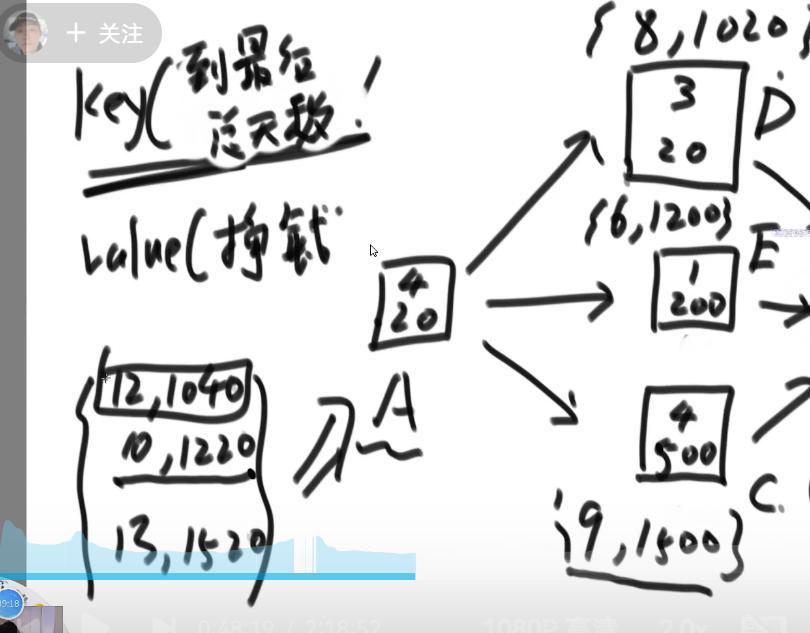 + 关注
key(到最后
总天数!
value(挣钱
12,1040
10,1220
13,1520
4
20
A
{8,1020}
3
20
D
{6,1200}
1
200
E
4
500
C
{9,1500}
9:18
0:48:19 / 2:18:52
1080P 高清
2.0x